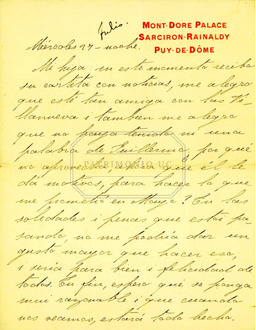 Julio.
MONT-DORE PALACE
SARCIRON-RAINALDY
PUY-DE-DÔME
Miércoles 27 - noche.
Mi hija: en este momento recibo
su cartita con noticias, me alegro
que esté tan amiga con las Vi-
llanueva i tambien me alegro
que no haya tenido ni una
palabra de Guillermo, por qué
no aprovecha, para que él le
dá motivos, para hacer lo que
me prometió en
? En las
soledades i penas que estoi pa-
sando no me podria dar un
gusto mayor que hacer eso,
i seria para bien i felicidad de
todos. En fin, espero que se ponga
mui razonable i que cuando
nos veamos, estará todo hecho.
PATRIMONIO UC